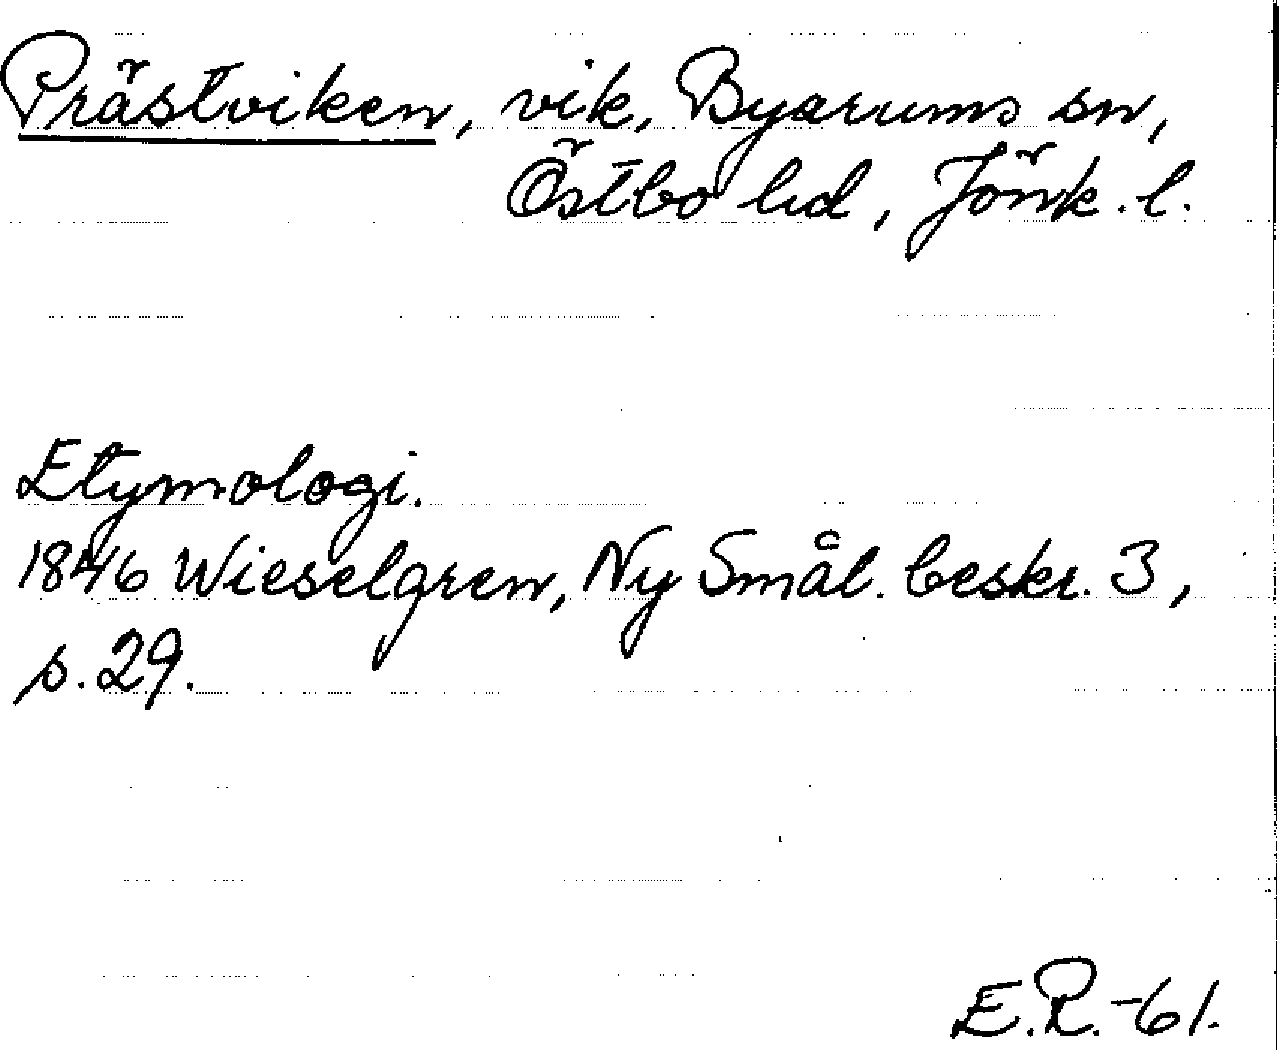 Prästviken, vik, Byarums sn,
Östbo hd, Jönk. l.
Etymologi.
1846 Wieselgren, Ny Smål. beskr. 3,
s. 29.
E.R.-61.